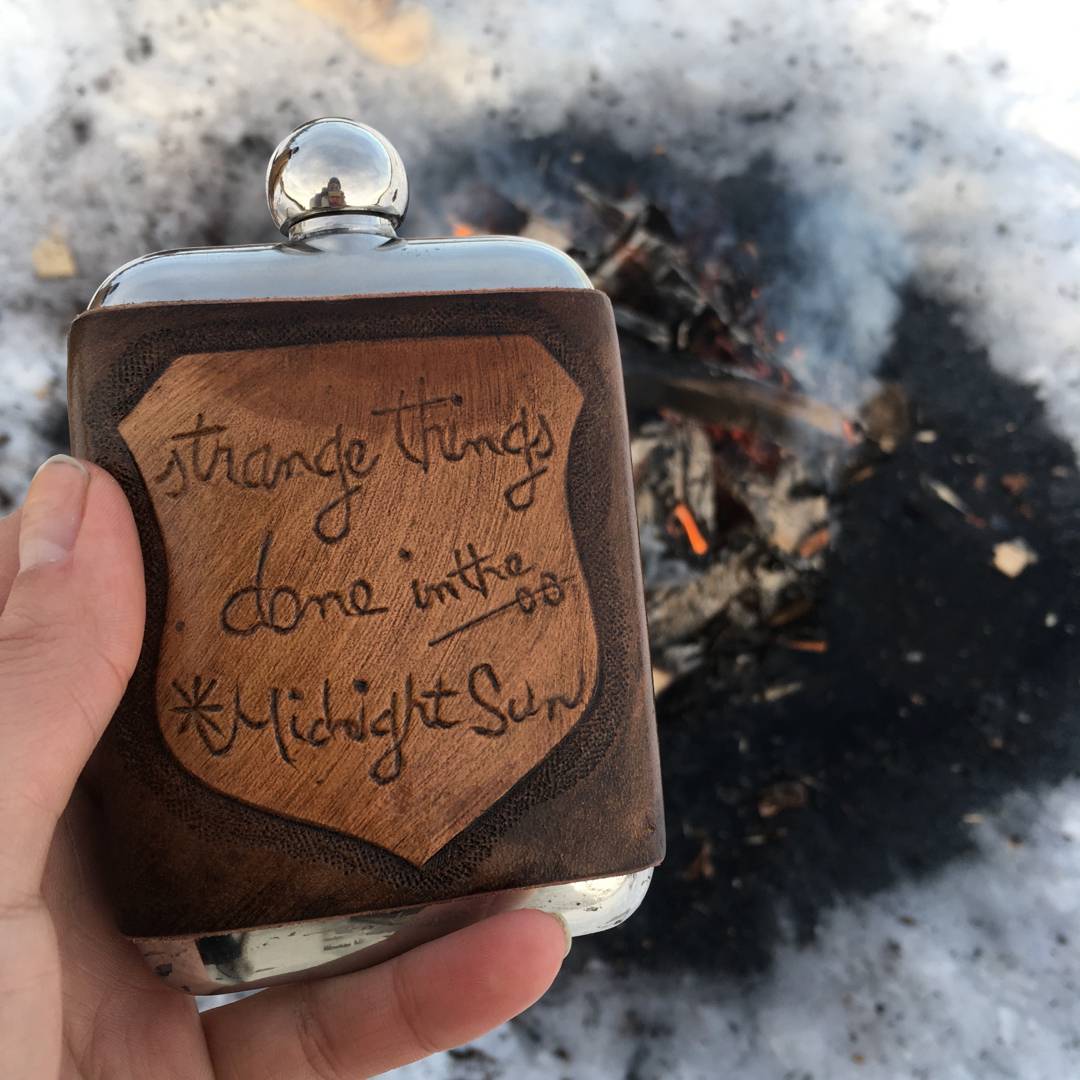 strange things
done in the
Midnight Sun